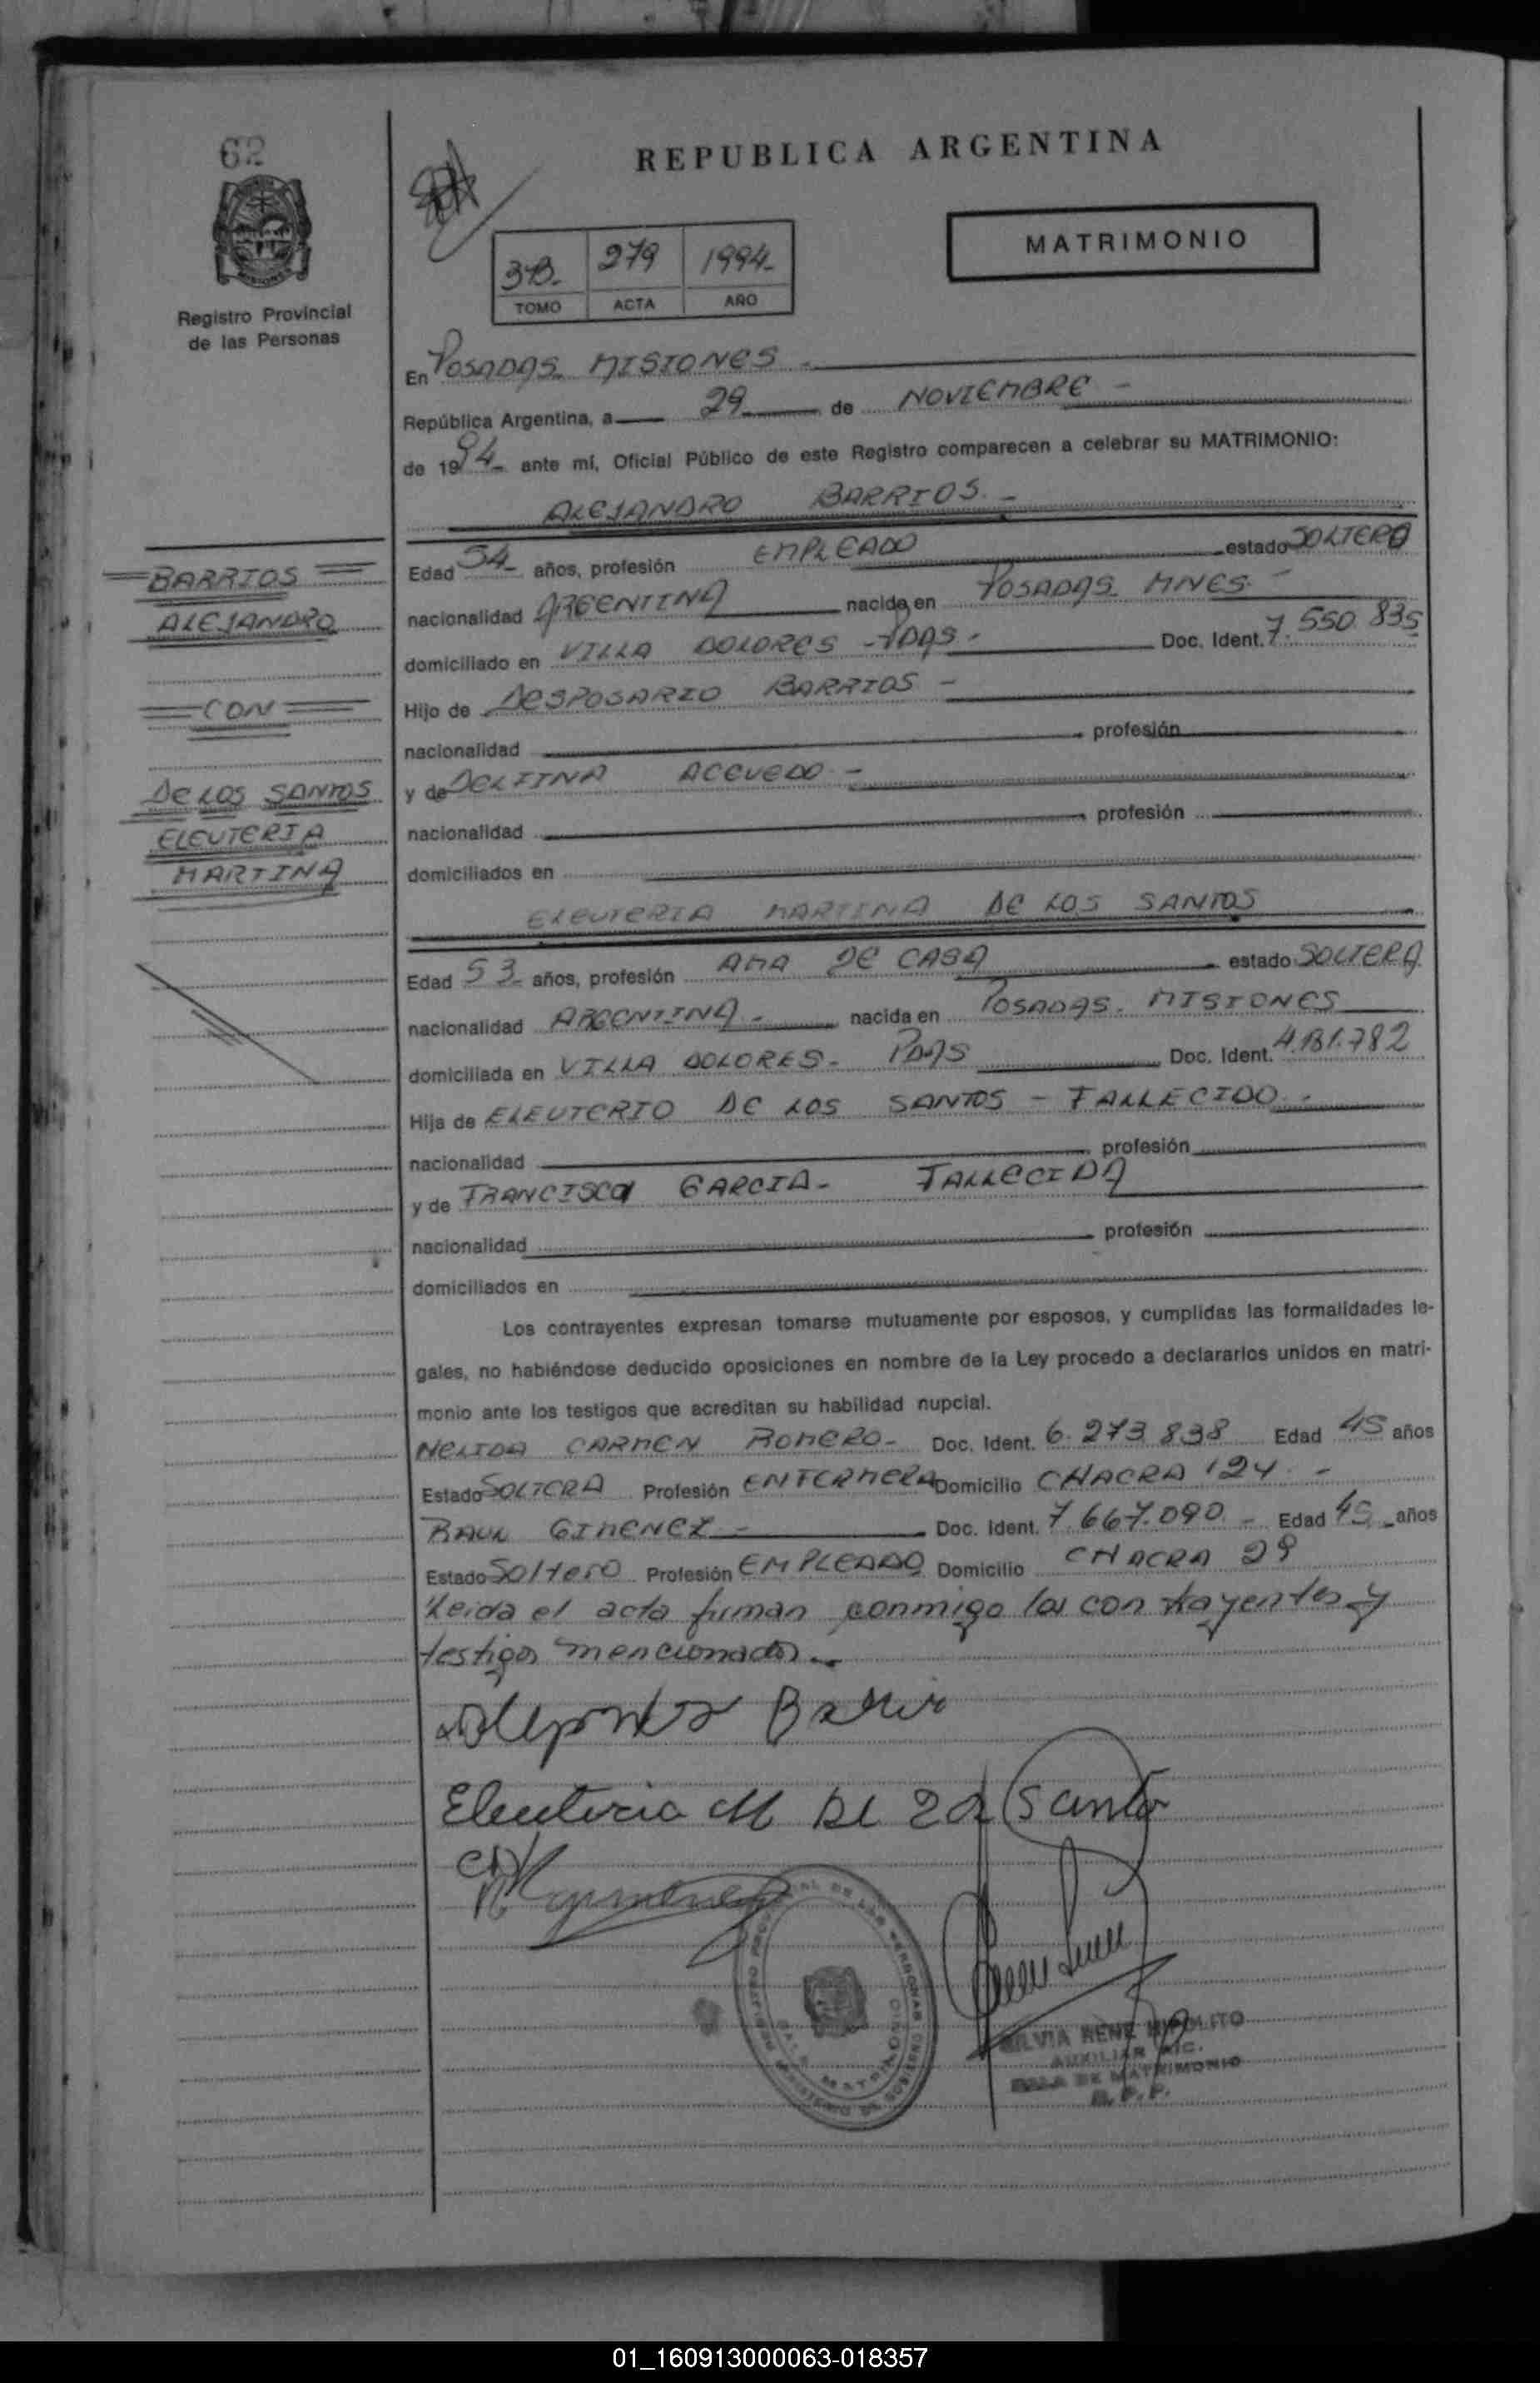 62
REPUBLICA ARGENTINA
MATRIMONIO
3B- 279 1994-
TOMO ACTA AÑO
Registro Provincial
de las Personas
En POSADAS MISIONES -
República Argentina, a 29 de NOVIEMBRE -
de 1994- ante mí, Oficial Público de este Registro comparecen a celebrar su MATRIMONIO:
ALEJANDRO BARRIOS. -
BARRIOS
ALEJANDRO
CON
DE LOS SANTOS
ELEUTERIA
MARTINA
Edad 54- años, profesión EMPLEADO estado SOLTERO
nacionalidad ARGENTINA nacido en POSADAS MNES -
domiciliado en VILLA DOLORES - PDAS - Doc. Ident. 7.550.835
Hijo de DESPOSARIO BARRIOS -
nacionalidad profesión
y de DELFINA ACEVEDO -
nacionalidad profesión
domiciliados en
ELEUTERIA MARTINA DE LOS SANTOS
Edad 53- años, profesión AMA DE CASA estado SOLTERA
nacionalidad ARGENTINA - nacida en POSADAS. MISIONES
domiciliada en VILLA DOLORES - PDAS Doc. Ident. 4.181.782
Hija de ELEUTERIO DE LOS SANTOS - FALLECIDO -
nacionalidad profesión
y de FRANCISCA GARCIA - FALLECIDA
nacionalidad profesión
domiciliados en
Los contrayentes expresan tomarse mutuamente por esposos, y cumplidas las formalidades le-
gales, no habiéndose deducido oposiciones en nombre de la Ley procedo a declararlos unidos en matri-
monio ante los testigos que acreditan su habilidad nupcial.
NELIDA CARMEN ROMERO - Doc. Ident. 6.273.838 Edad 45 años
Estado SOLTERA Profesión ENFERMERA Domicilio CHACRA 124 -
RAUL GIMENEZ - Doc. Ident. 7.667.090 - Edad 45 años
Estado Soltero Profesión EMPLEADO Domicilio CHACRA 29
Leida el acta firman conmigo los contrayentes y
testigos mencionados.-
Alejandro Barrios
Eleuteria M De Los Santos
R Gimenez
REGISTRO PROVINCIAL DE LAS PERSONAS
MINISTERIO DE GOBIERNO
SALA MATRIMONIO
SILVIA RENE HIPOLITO
AUXILIAR
SALA DE MATRIMONIO
R. P. P.
01_160913000063-018357